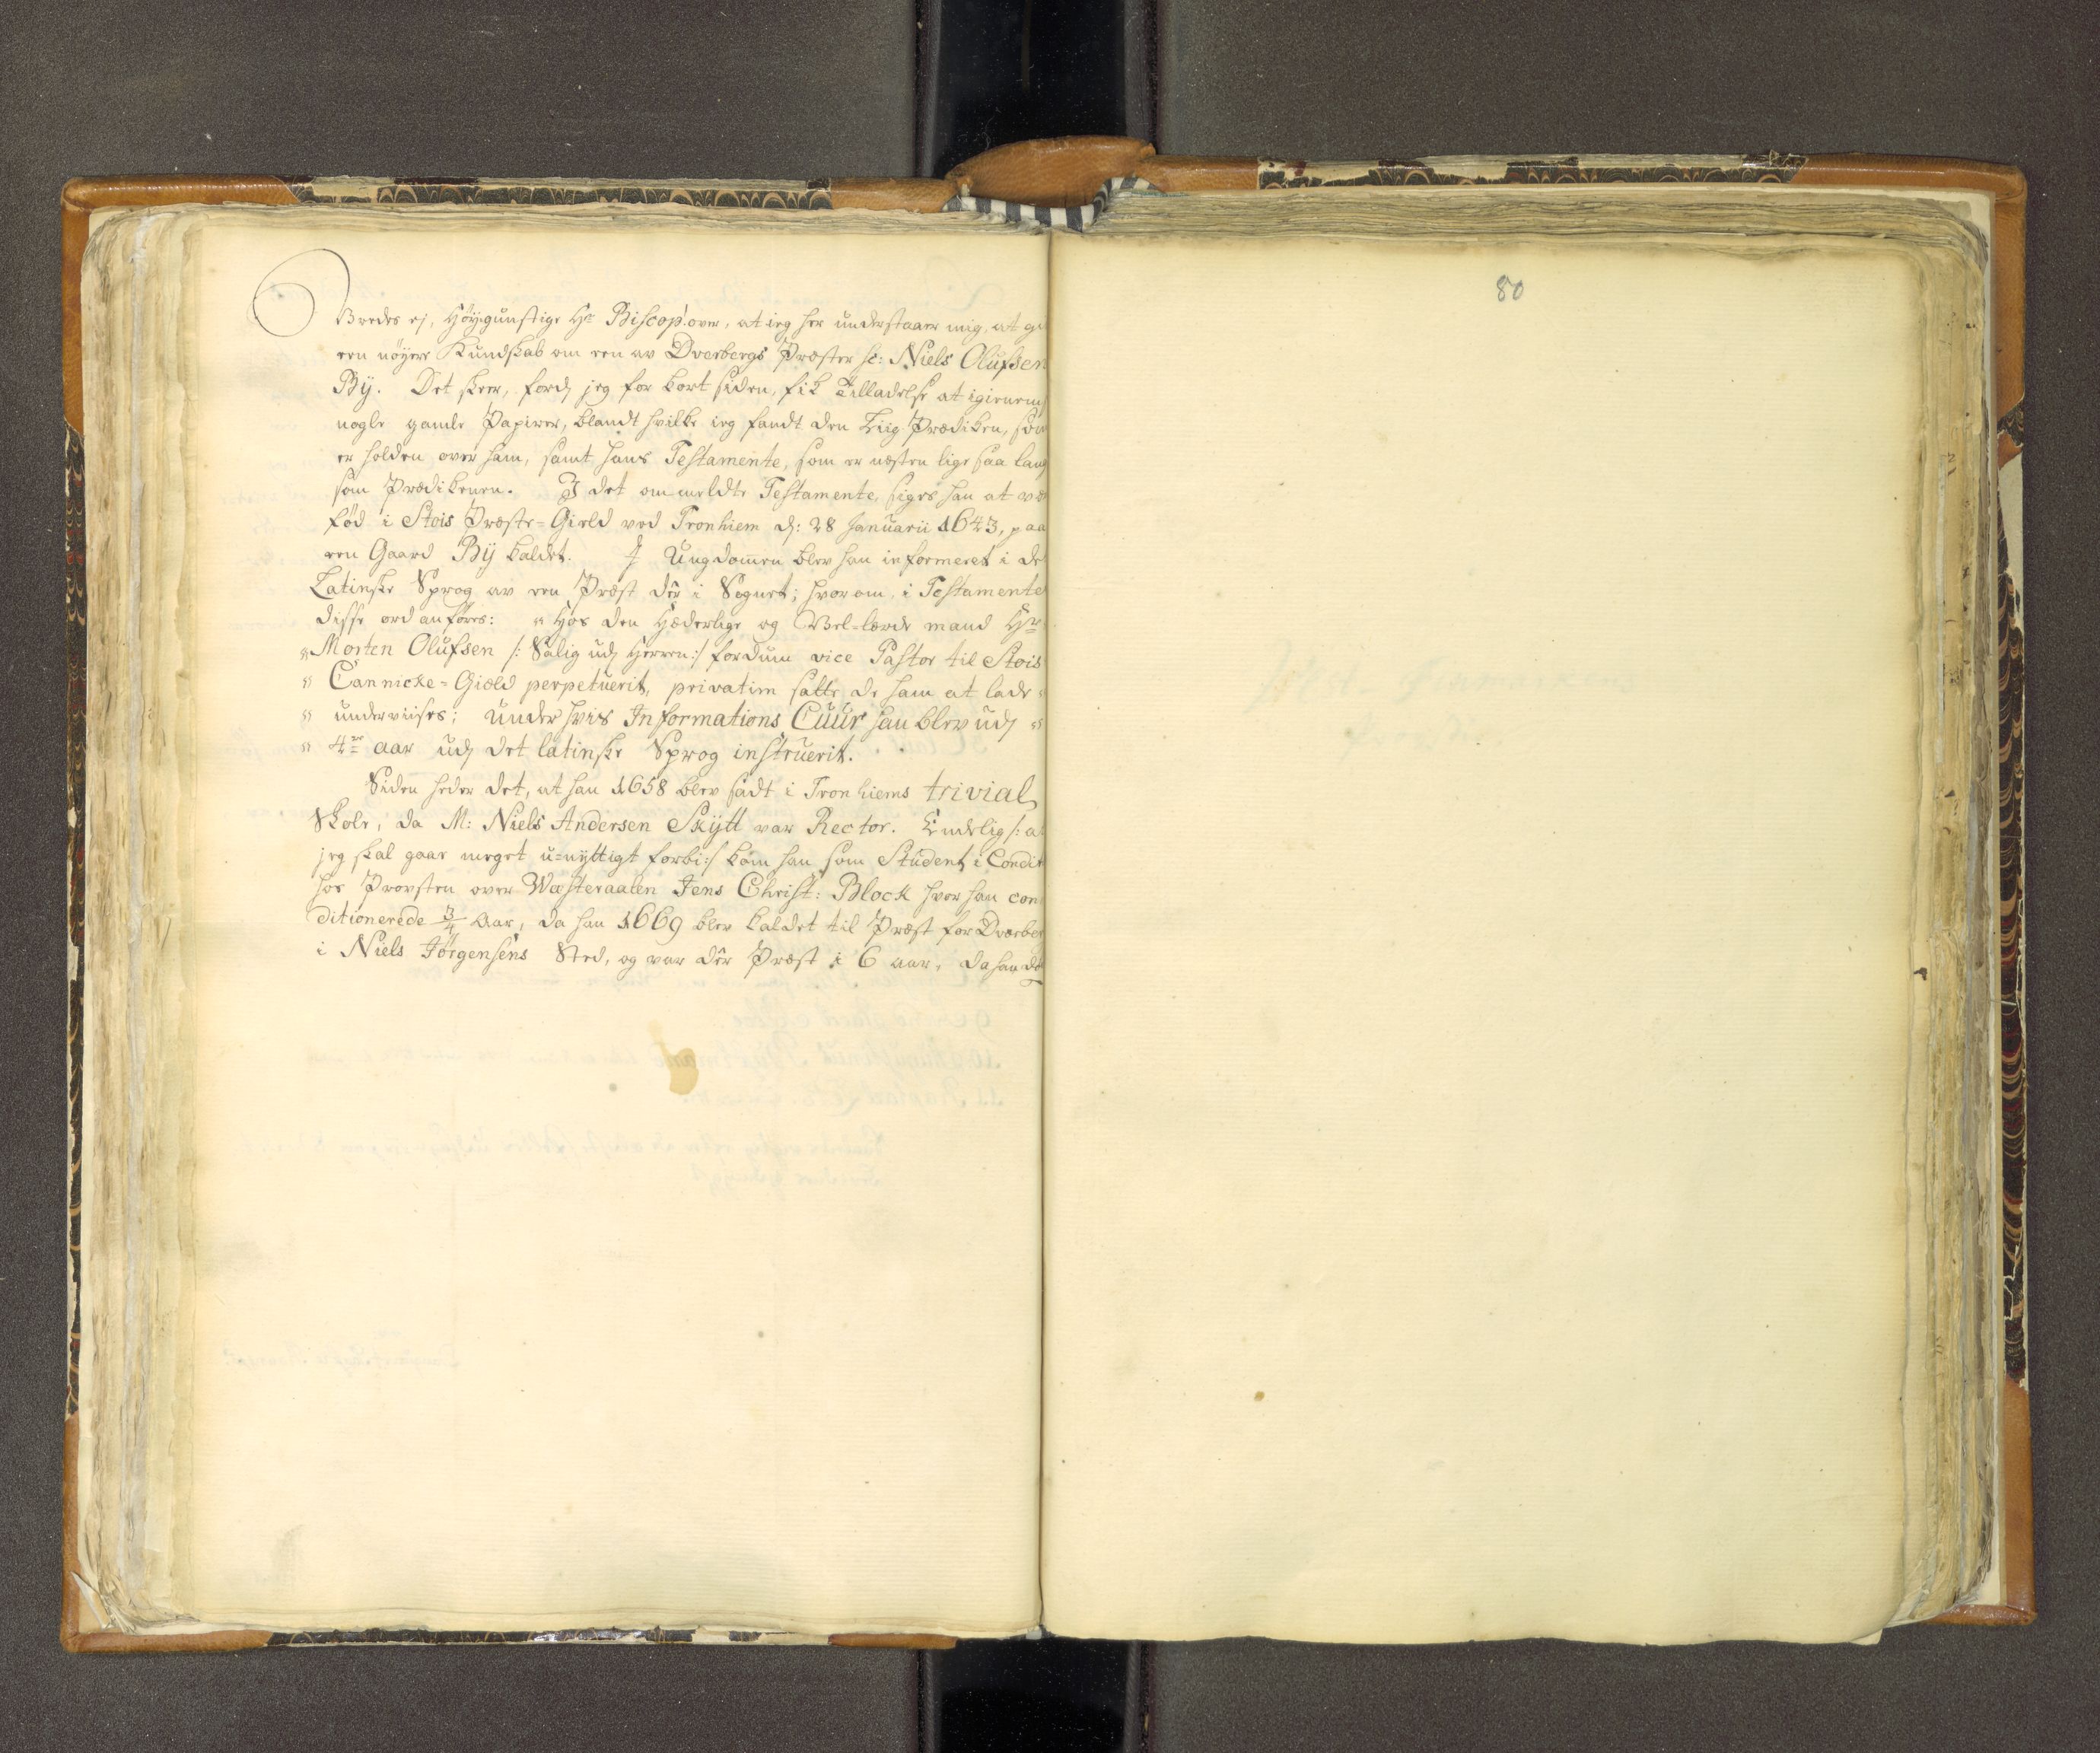 Vredes ej, Høÿgunstige Hr Biscop! over, at ieg her understaaer mig, at gi
een nøÿere Kundskab om een av Dverbergs Præster sc: Niels Olufsen
Bÿ. Det skeer, fordj jeg for kort siden, fik Tilladelse at igiennem
nogle gamle Papirer, blandt hvilke ieg fandt den Liig Prædiken, som
er holden over ham, samt hans Testamente, som er næsten lige saa lang
som Prædikenen. I det ommeldte Testamente, siges han at væ
fød i Stois Præste-Gield ved Tronhiem d: 28 Januarii 1643, paa
een Gaard Bÿ kaldet. I Ungdomen blev han informeret i de
Latinske Sprog av een Præst der i Sognet; hvorom, i Testamente
disse ord anføres: "Hos den Hæderlige og Vel-lærde mand Hr
"Morten Olufsen /: Salig udj Herren :/ fordum vice Pastor til Stois
" Cannicke-Giæld perpetuerit, privatim satte de ham at lade "
" underviises; under hvis Informations Cuur han blev udj "
" 4re aar udj det latinske Sprog instruerit.
Siden heder det, at han 1658 blev sadt i Tronhiems trivial
Skole, da M: Niels Andersen Skÿtt var Rector. Endelig /: at
jeg skal gaae meget u-nÿttigt forbi :/ kom han som Student i Condit
hos Provsten over Wæsteraalen Jens Christ: Block hvor han con
ditionerede 3/4 Aar, da han 1669 blev kaldet til Præst for Dverber
i Niels Jørgensens Sted, og var der Præst i 6 aar, da han dø
80